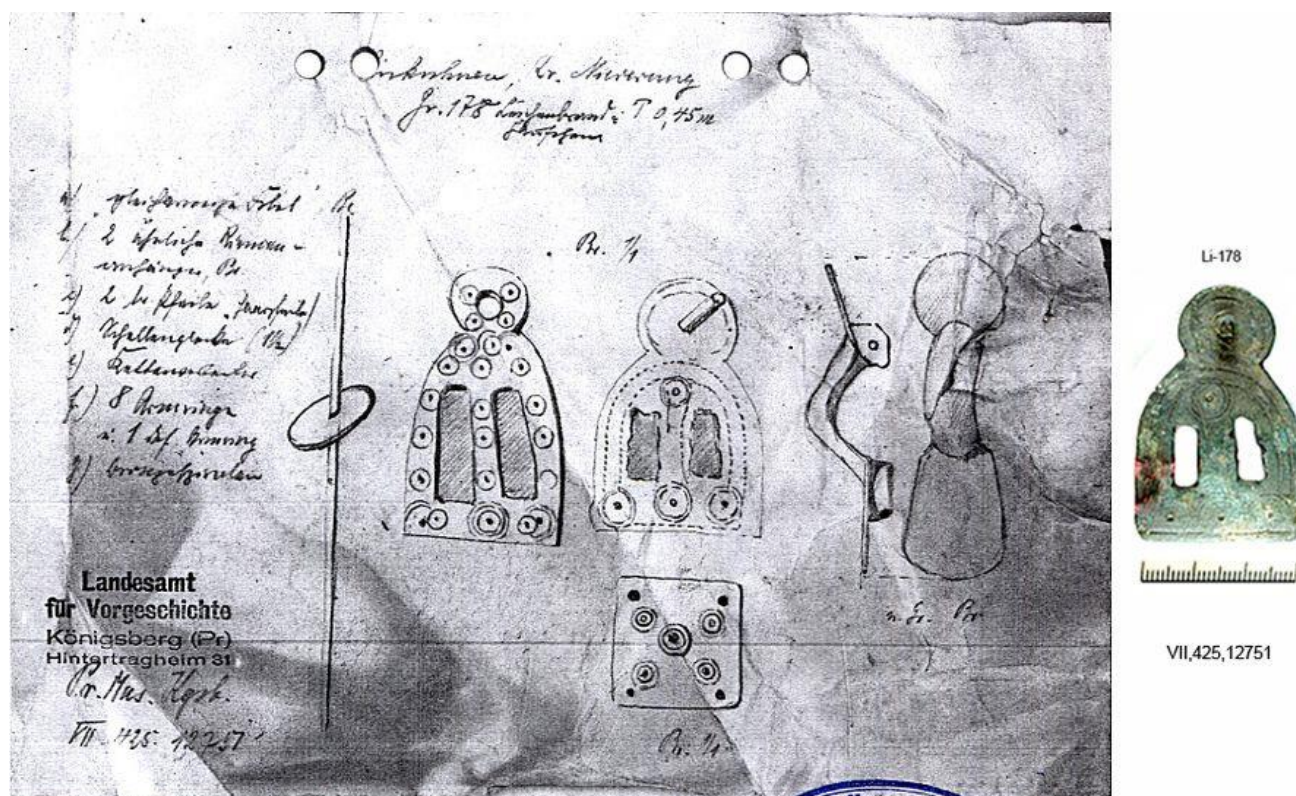 Linkuhnen, Kr. Niederung
Gr. 178 Leichenbrand: T 0,45m
a) gleicharmige Fibel Br.
b) 2 ähnliche Riemen-
anhänger, Br.
c) 2 br Pfeile
d) Schellenglocke (1/2)
e)
f) 8 Armringe
u. 1 def. Armring
g) bronzespiralen
Br. 1/1
n. Gr. Br.
Br. 1/1
Landesamt
für Vorgeschichte
Königsberg (Pr)
Hintertragheim 31
Pr. Mus. Kgsb.
VII 425. 12751
Li-178
VII,425,12751